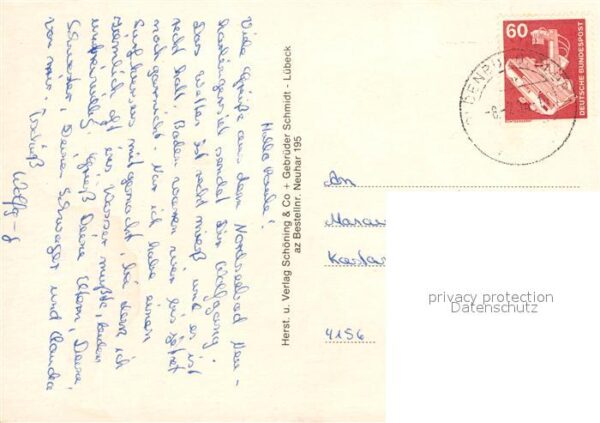 Hallo Paule!
Viele Grüße aus dem Nordseebad Neu-
harlingersiel sendet Dir Wolfgang.
Das Wetter ist recht mieß und es ist
recht kalt. Baden waren wir bis jetzt
noch garnicht. Nur ich habe einen
Surfkursus mitgemacht, bei dem ich
ziemlich oft ins Wasser mußte, leider
unfreiwillig. Grüß Deine Eltern, Deine
Schwester, Deinen Schwager und Claudia
von mir. Tschüß
Wolfg-g
Herst. u. Verlag Schöning & Co + Gebrüder Schmidt - Lübeck
az Bestellnr. Neuhar 195
60
DEUTSCHE BUNDESPOST
-8.
An
4156
privacy protection
Datenschutz